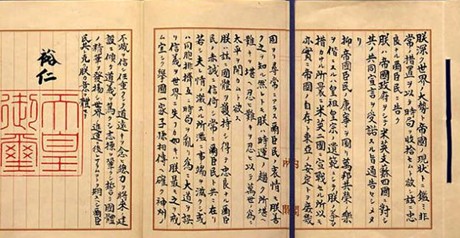 朕深ク世界ノ大勢ト帝國ノ現狀トニ鑑ミ非
常ノ措置ヲ以テ時局ヲ收拾セムト欲シ茲ニ忠
良ナル爾臣民ニ告ク
朕ハ帝國政府ヲシテ米英支蘇四國ニ對シ
其ノ共同宣言ヲ受諾スル旨通告セシメタ
抑帝國臣民ノ康寧ヲ圖リ萬邦共榮ノ樂
ヲ偕ニスルハ皇祖皇宗ノ遺範ニシテ朕ノ
措カサル所曩ニ米英二國ニ宣戰セル所以モ
亦實ニ帝國ノ自存ト東亞ノ安定トヲ庶幾
内閣
固ヨリ尋常ニアラス爾臣民ノ衷情モ朕善
ク之ヲ知ル然レトモ朕ハ時運ノ趨ク所堪ヘ
難キヲ堪ヘ忍ヒ難キヲ忍ヒ以テ萬世ノ爲ニ
太平ヲ開カムト欲ス
朕ハ茲ニ國體ヲ護持シ得テ忠良ナル爾臣
民ノ赤誠ニ信倚シ常ニ爾臣民ト共ニ在リ
若シ夫レ情ノ激スル所濫ニ事端ヲ滋クシ或
ハ同胞排擠互ニ時局ヲ亂リ爲ニ大道ヲ誤
リ信義ヲ世界ニ失フカ如キハ朕最モ之ヲ戒
ム宜シク擧國一家子孫相傳ヘ確ク神州ノ
不滅ヲ信シ任重クシテ道遠キヲ念ヒ總力ヲ將來ノ建
設ニ傾ケ道義ヲ篤クシ志操ヲ鞏クシ誓テ國體
ノ精華ヲ發揚シ世界ノ進運ニ後レサラムコトヲ期スヘシ爾臣
民其レ克ク朕カ意ヲ體セヨ
裕仁
天皇
御璽